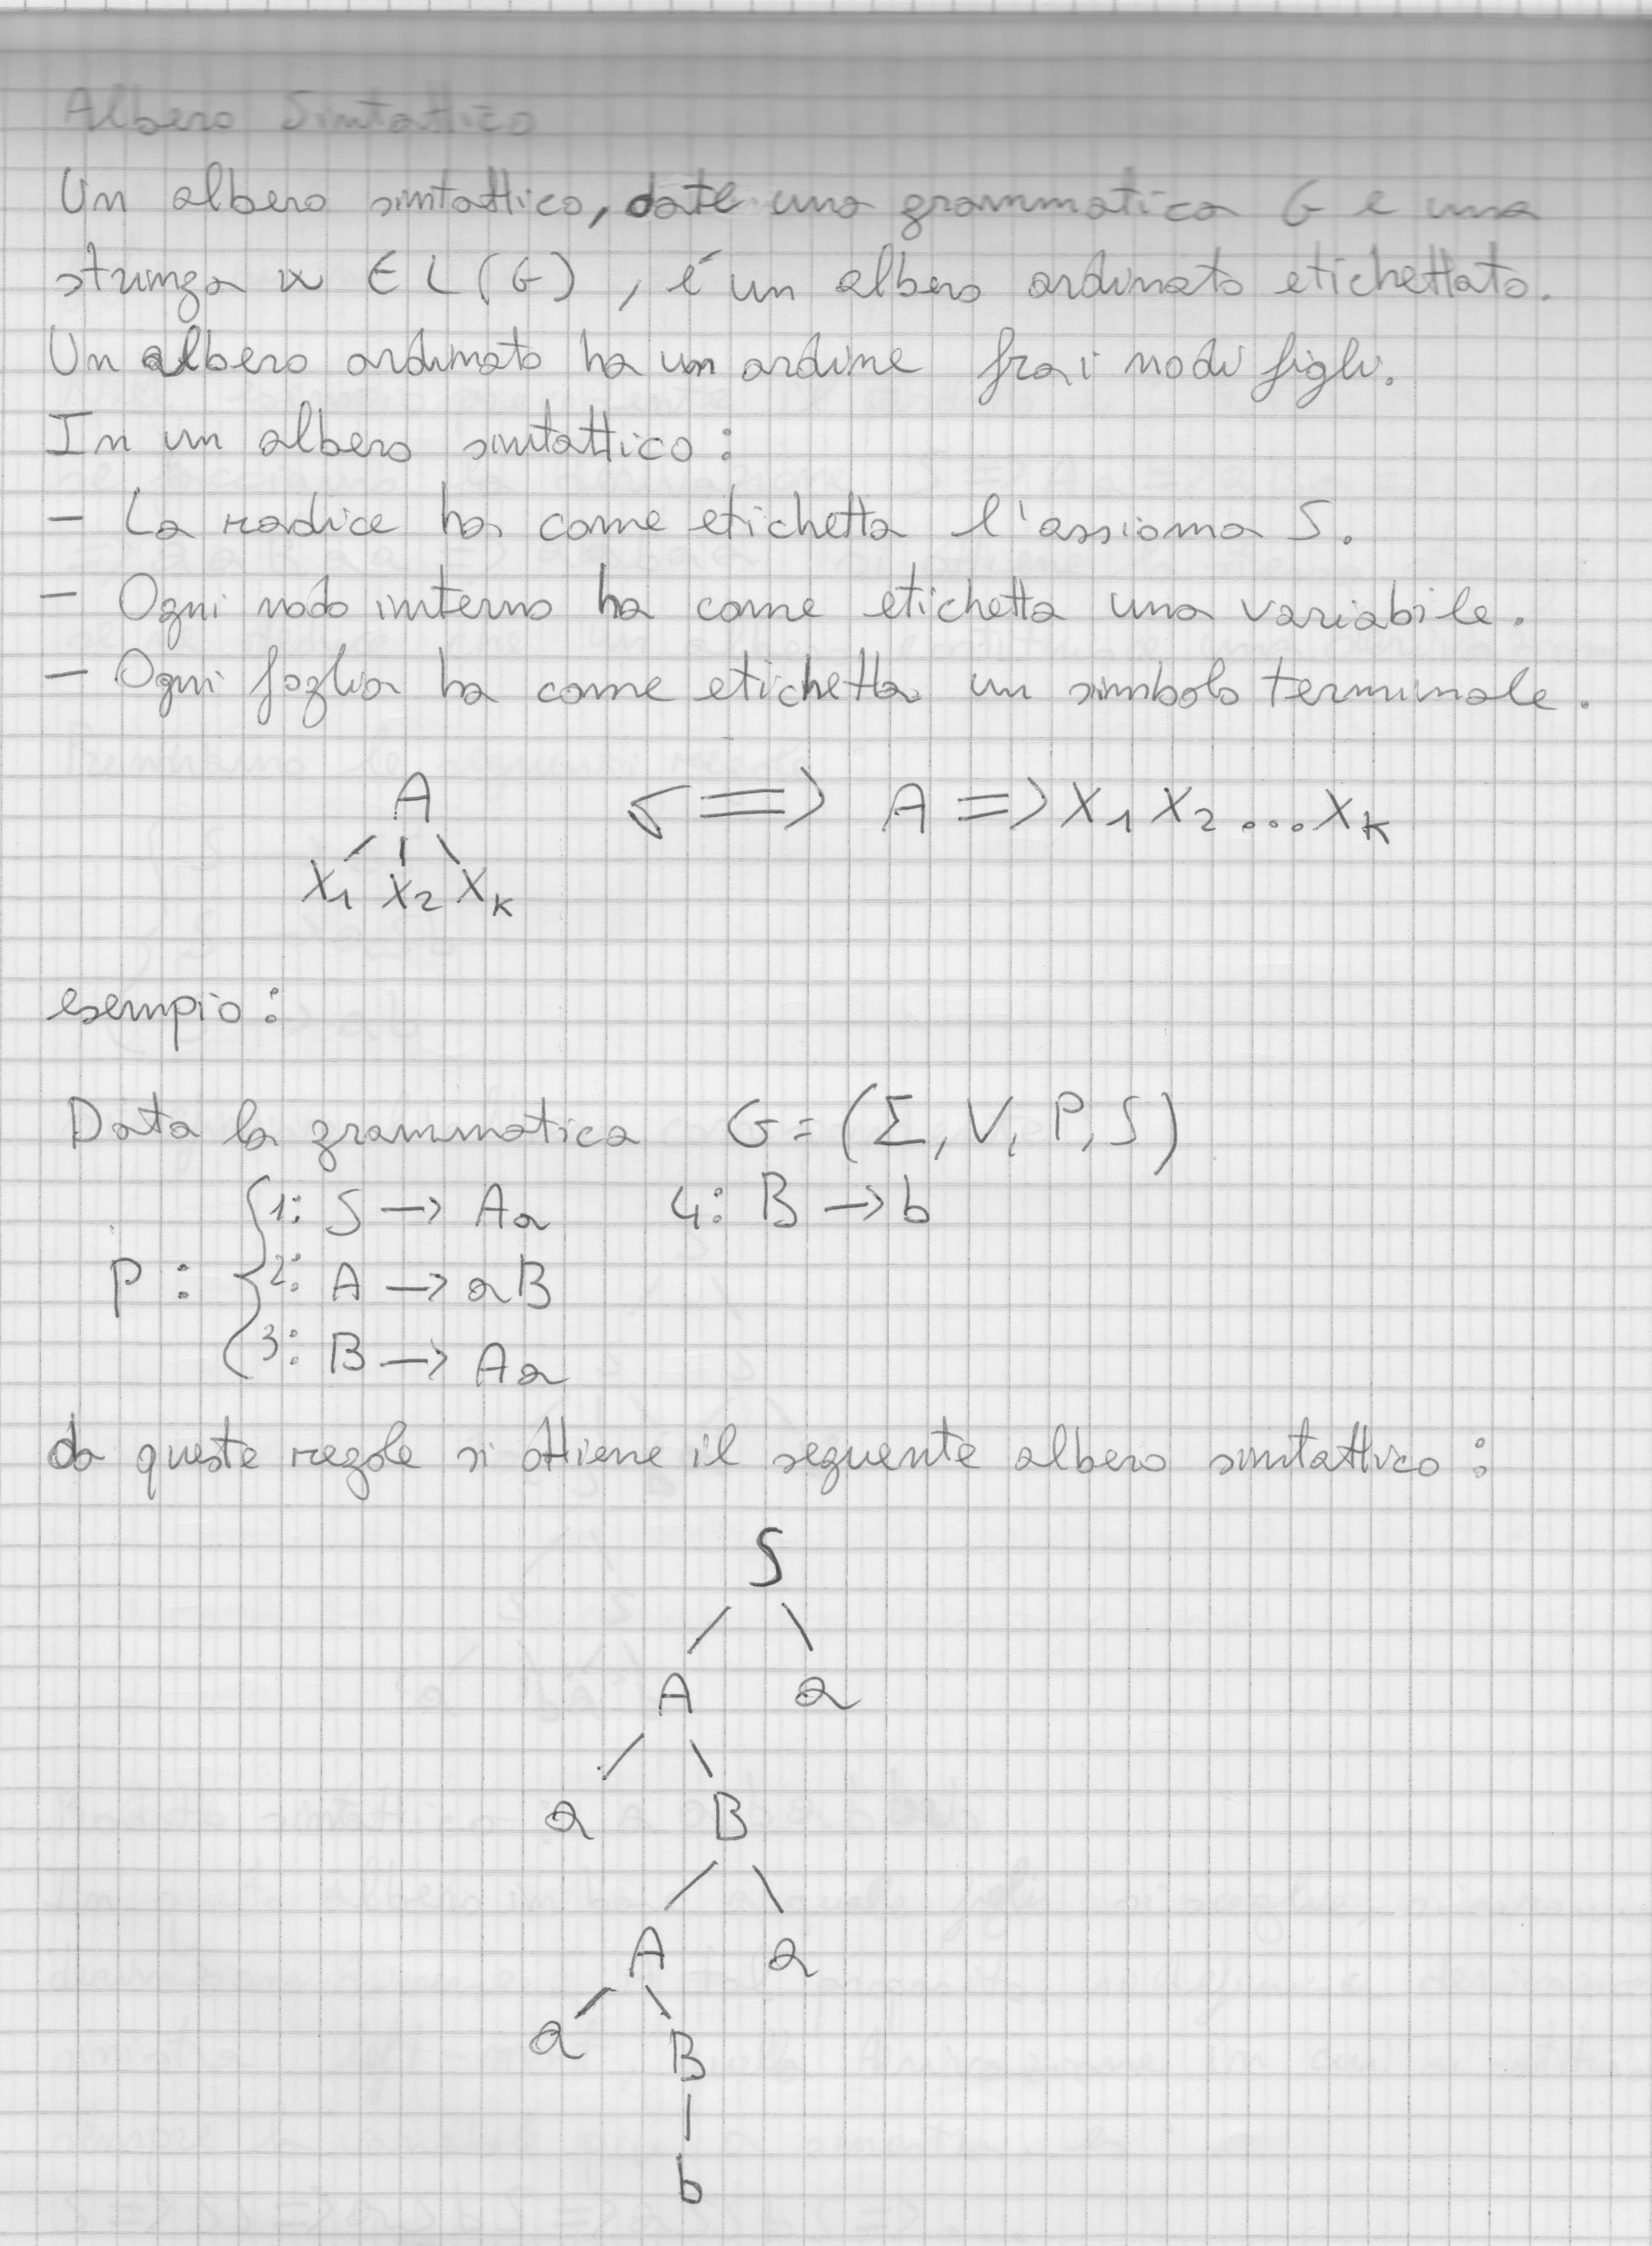 Albero Sintattico
Un albero sintattico, date una grammatica G e una
stringa w ∈ L(G), é un albero ordinato etichettato.
Un albero ordinato ha un ordine fra i nodi figli.
In un albero sintattico:
- La radice ha come etichetta l'assioma S.
- Ogni nodo interno ha come etichetta una variabile.
- Ogni foglia ha come etichetta un simbolo terminale.
A => A => X1 X2 ... XK
X1 X2 XK
esempio:
Data la grammatica G = (Σ, V, P, S)
1: S -> Aa 4: B -> b
P: 2: A -> aB
3: B -> Aa
da queste regole si ottiene il seguente albero sintattico:
S
A a
a B
A a
a B
b